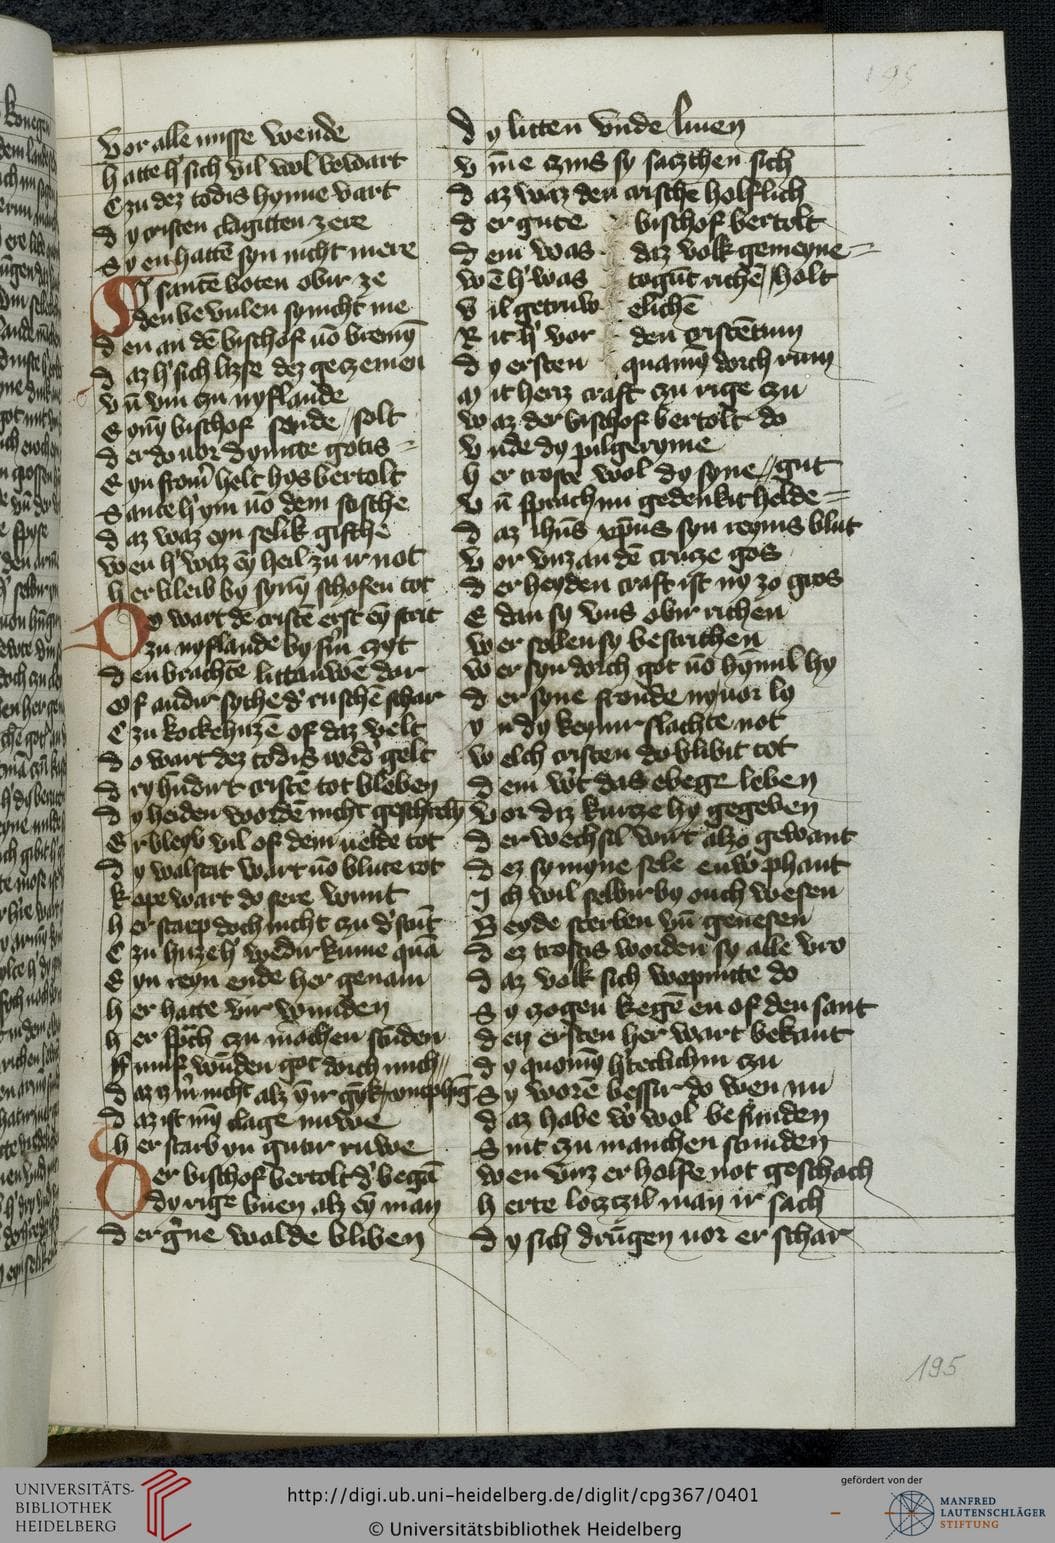 195
Vor alle misse wende
hatte h' sich vil wol bewart
Czu dez todis hynne vart
dy cristen clagitten zere
Sy en hattē syn nicht mere
Sy santē boten obir ze
den bevulen sy nicht me
den an dē bischof vō bremē
daz h' sich lize dez geczemen
vn̄ vm czu nyflande
Eynē bischof sende // solt
der do vor dynite gotis =
Eyn from̄ helt hys bertolt
Sante h' ym vō dem sosche
daz waz eyn selik gifthe
wen h' waz eȳ heil zu ir not
her bleib by synē schofen tot
Do wart dē cristē erst eȳ strit
zu nyflande by sin' czyt
den brachtē littauwē dar
Of andir sythe d' ruschē schar
Czu kockehuzē of daz velt
do wart dez todis wed' gelt
dry hūdirt cristē tot bleben
dy heiden wordē nicht
Er bleyb vil of dem velde tot
dy walstat wart vō blute rot
kope wart do sere wunt
her starp doch nicht czu d' stūt
Czu huze h' wedir kume quā
Eyn reyn ende her genam
her hatte vir wunden
her sprach czu māchen stūden
ff umf wūden got dorch mich //
daz
daz ist myn clage nuwe
her starb yn gutir ruwe
Der bischof bertolt d' begā
dy rige buen alz eȳ man
der gerne wolde bliben
dy litten vnde liuen
vm̄e czins sy saczthen sich
daz waz den cristē holflich
der gute bischof bertolt
dem was daz volk gemeyne =
wē h' was togūt richē // holt
vil getruw elichē
Rit h' vor den cristētum
dy ersten quamē dorch rum
Mit herz craft czu rige czu
waz der bischof bertolt do
vnde dy pilgeryme
her troste wol dy syne // gut
vn̄ sprach nu gedenkit helde =
daz ihūs xp̄us syn reynis blut
vor vnz an dē cruze gos
der heyden craft ist ny zo gros
E dan sy vns obir richen
wer sollen sy bestrichen
wer syn dorch got vō hȳmil hy
der syne fronde ny vor ly
yn dy keynir slachte not
welch cristen do blibit tot
dem wirt das ebege leben
vor diz kurze hy gegeben
der wechsil wirt alzo gewant
dez symyne sele enw phant
Ich wil selbir by ouch wesen
Beyde sterben vn̄ genesen
dez trostis worden sy alle vro
daz volk sich wepinte do
Sy zogen kegē en of den sant
den ersten her wart bekant
dy quomē h'teclichin czu
Sy worē bessir do wen nu
daz habe w' wol befunden
Sint czu manchen stunden
wen vnz er holfe not geschach
herte lotzczil man ir sach
dy sich drūgen vor er schar
195
UNIVERSITÄTS-
BIBLIOTHEK
HEIDELBERG
http://digi.ub.uni-heidelberg.de/diglit/cpg367/0401
© Universitätsbibliothek Heidelberg
gefördert von der
MANFRED
LAUTENSCHLÄGER
STIFTUNG